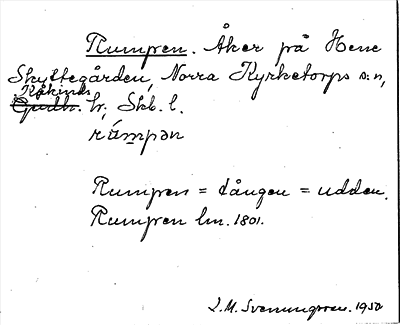 Rumpen. Åker på Hene
Skyttegården, Norra Kyrketorps s:n,
Kåkinds
Gudh. hr, Skb. l.
rúmpən
Rumpen = tången = udden.
Rumpen lm. 1801.
S. M. Svenungsson. 1950